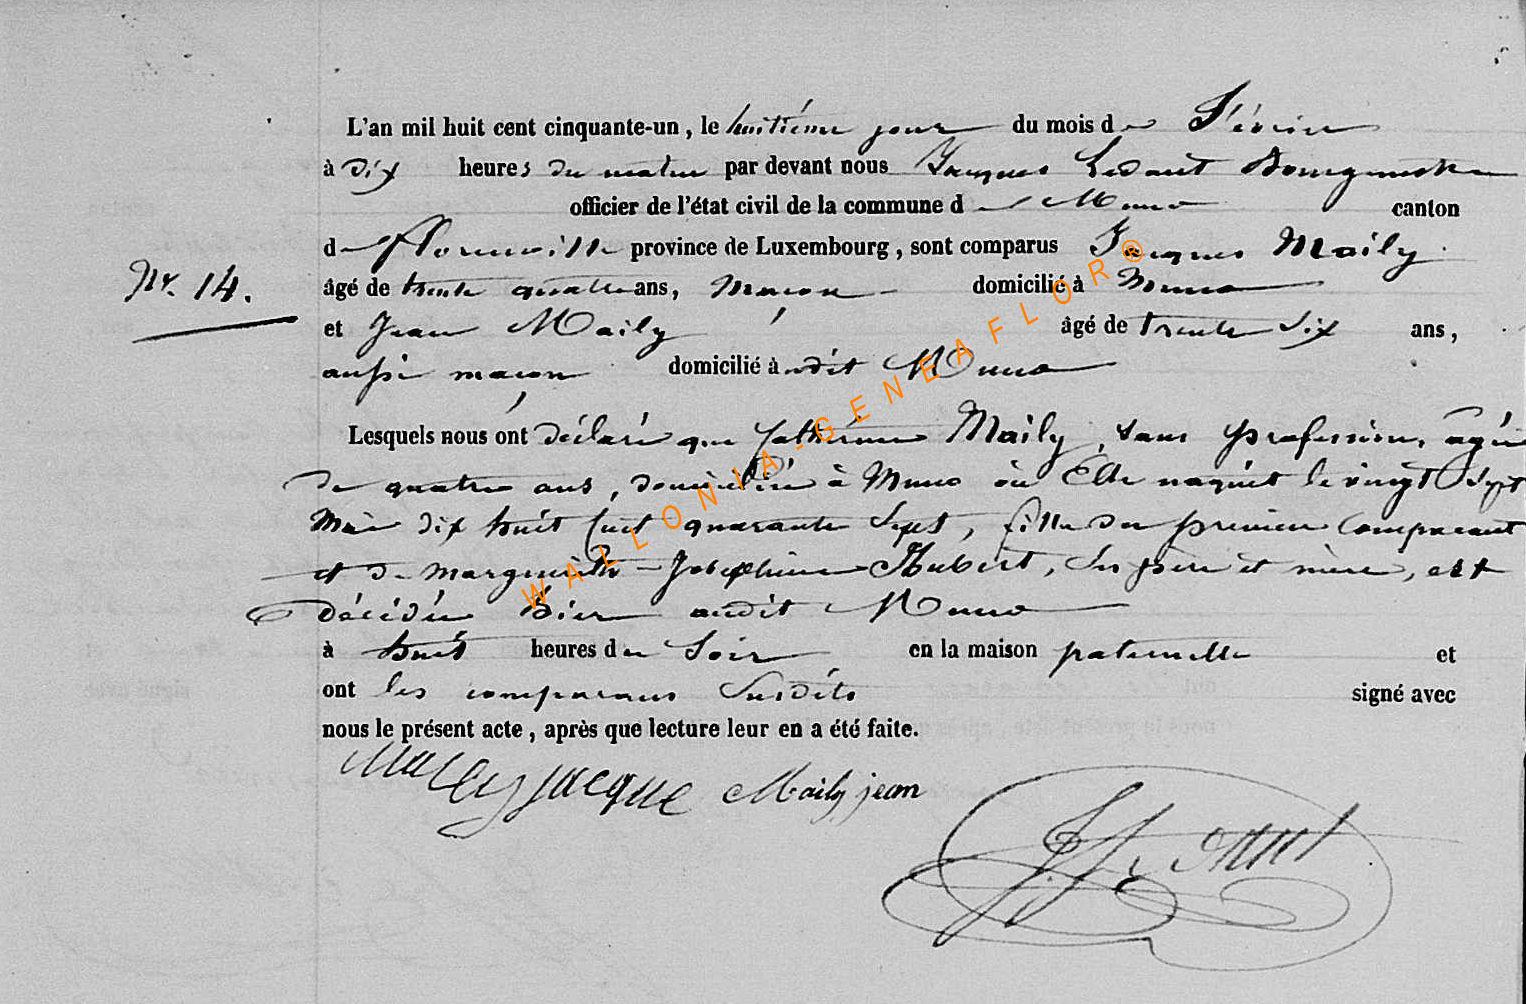 L'an mil huit cent cinquante-un, le huitième jour du mois de Février
à dix heures du matin par devant nous Jacques Ledant Bourgmestre
officier de l'état civil de la commune de Muno canton
de Florenville province de Luxembourg, sont comparus Jacques Maily
Nr. 14.
âgé de trente quatre ans, maçon domicilié à Muno
et Jean Maily âgé de trente six ans,
aussi maçon domicilié à udit Muno
Lesquels nous ont déclaré que Catherine Maily, sans profession, agée
de quatre ans, domiciliée à Muno où Elle naquit le vingt Sept
Mai dix huit cent quarante Sept, fille du premier Comparant
et de Marguerite-Josephine Hubert, Ses père et mère, est
décédée hier audit Muno
à huit heures du Soir en la maison paternelle et
ont les comparans Susdits signé avec
nous le présent acte, après que lecture leur en a été faite.
Maily jacque Maily jean
Ledant
WALLONIA-GENEAFLOR®